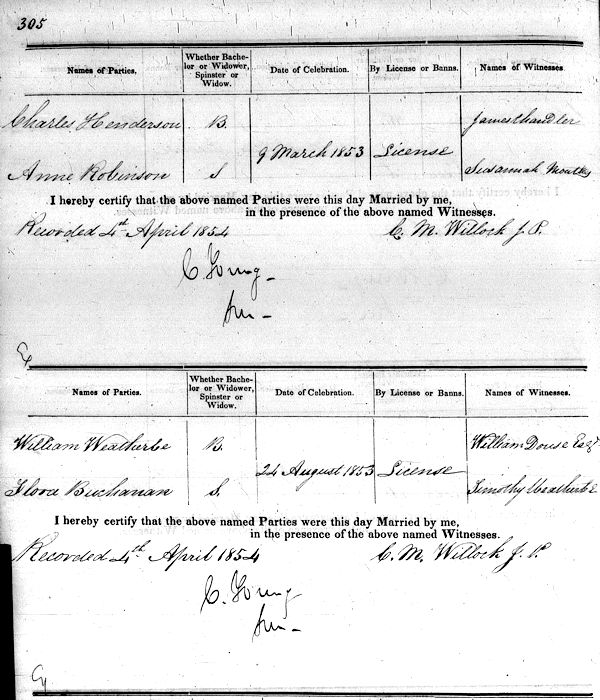 305
Names of Parties. Whether Bachelor or Widower, Spinster or Widow. Date of Celebration. By License or Banns. Names of Witnesses.
Charles Henderson B. James Chandler
9 March 1853 License
Anne Robinson S Susannah
I hereby certify that the above named Parties were this day Married by me,
in the presence of the above named Witnesses.
Recorded 4th April 1854 C. M. Willock J. P.
C. Young
Ex
Names of Parties. Whether Bachelor or Widower, Spinster or Widow. Date of Celebration. By License or Banns. Names of Witnesses.
William Weatherbe B. William Douse Esqr
24 August 1853 License
Flora Buchanan S. Timothy Weatherbe
I hereby certify that the above named Parties were this day Married by me,
in the presence of the above named Witnesses.
Recorded 4th April 1854 C. M. Willock J. P.
C. Young